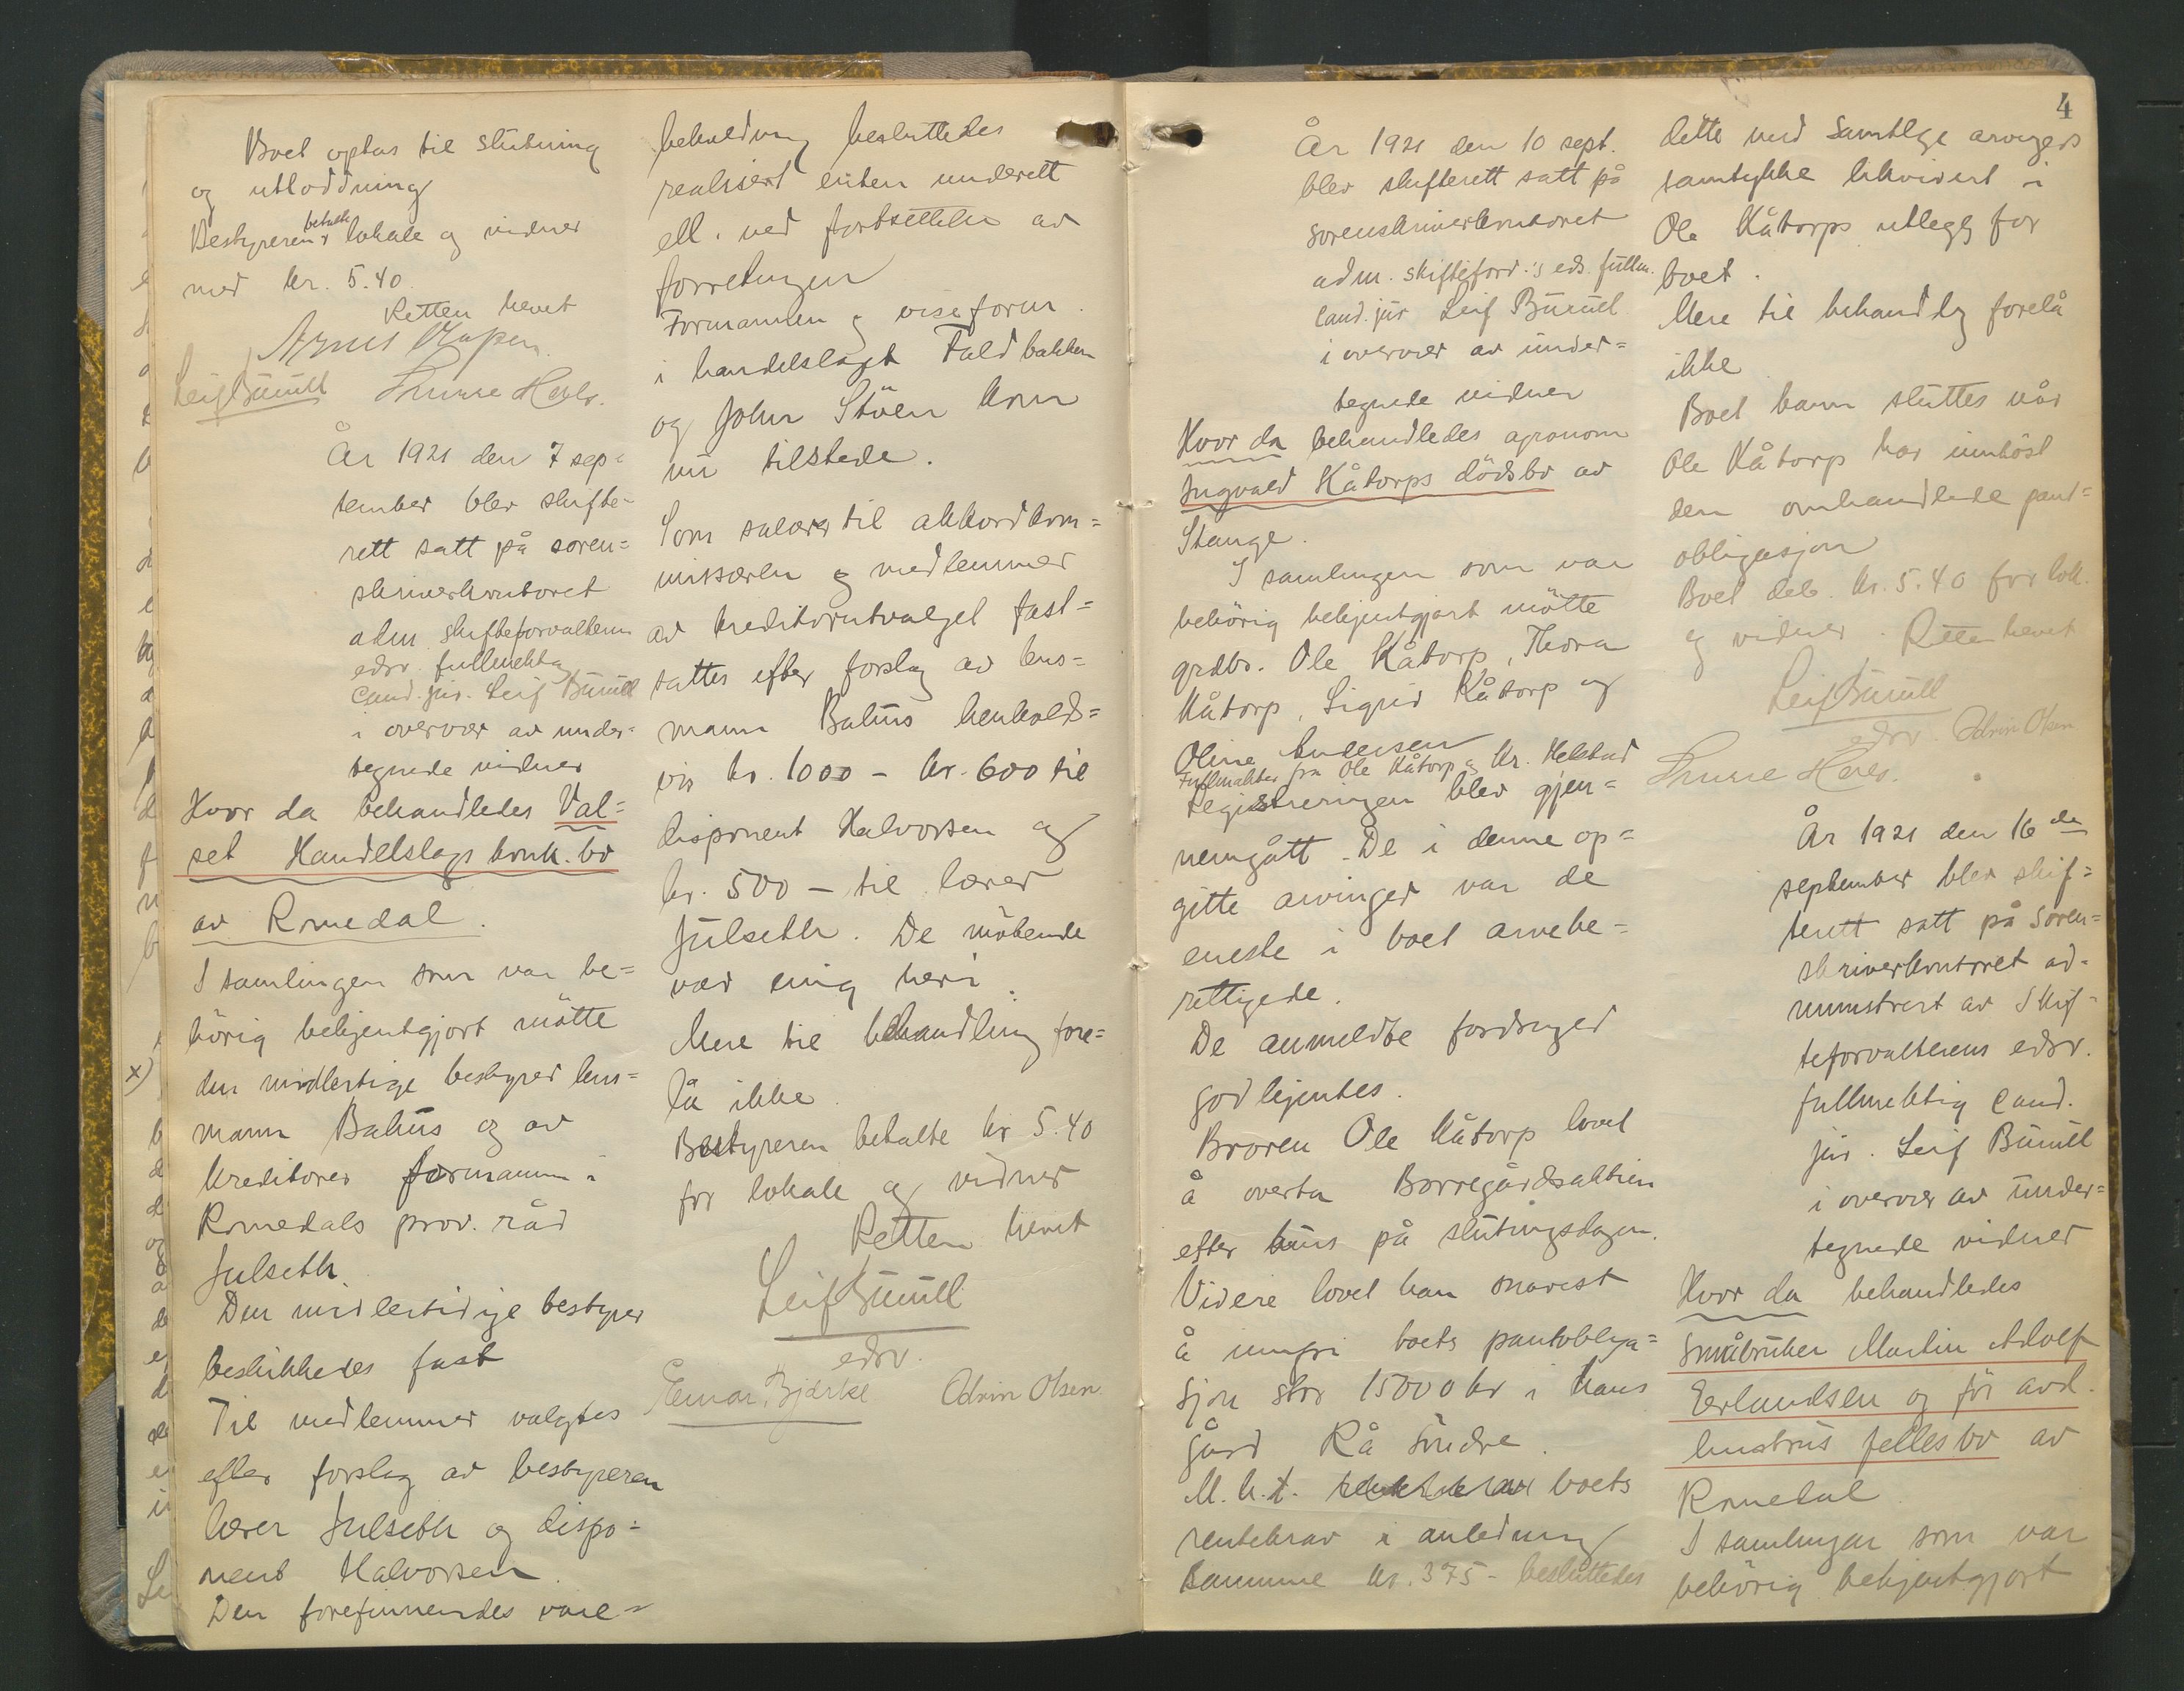 Boet optas til slutning
og utloddning
Bestyreren betalte lokale og vidner
med kr. 5.40.
Retten hevet
Leif Büüll
År 1921 den 7 sep=
tember blev skifte-
rett satt på soren=
skriverkontoret
adm. skifteforvalterens
edsv. fullmektig
cand. jur. Leif Büüll
i overvær av under=
tegnede vidner
Hvor da behandledes Val=
set Handelslags konk. bo
av Romedal.
I samlingen som var be=
hörig bekjentgjort mötte
x)
den midlertige bestyrer lens=
mann Bahüs og av
kreditorer formannen i
Romedals prov. råd
Julseth.
Den midlertidige bestyrer
beskikkedes fast
Til medlemmer valgtes
efter forslag av bestyreren
lærer Julseth og dispo=
nent Halvorsen.
Den forefinnendes vare=
beholdning besluttedes
realisert enten underett
ell. ved fortsettelse av
forretningen
Formannen og viseform.
i handelslaget Faldbakken
og John Stüen kom
nu tilstede.
Som salær til akkordkom=
missæren og medlemmer
av kreditorutvalget fast=
sattes efter forslag av lens=
mann Bahüs henholds=
vis kr. 1000 - kr. 600 til
disponent Halvorsen og
kr. 500 - til lærer
Julseth. De mötende
var enig heri.
Mere til behandling fore=
lå ikke.
Bestyreren betalte kr 5.40
for lokale og vidner
Retten hevet
Leif Büüll
edsv.
Einar Bjerke Odvin Olsen
4
År 1921 den 10 sept.
blev skifterett satt på
sorenskriverkontoret
adm. skifteforv.'s eds. fullm.
cand. jur Leif Büüll
i overvær av under=
tegnede vidner
Hvor da behandledes agronom
Ingvald Kåtorps dödsbo av
Stange.
I samlingen som var
behörig bekjentgjort mötte
grdbr. Ole Kåtorp, Thora
Kåtorp, Sigrid Kåtorp og
Oline Andersen
Fullmakter fra Ole Kåtorp og Kr. Helstad
Registreringen blev gjen=
nemgått. De i denne op=
gitte arvinger var de
eneste i boet arvebe=
rettigede.
De anmeldte fordringer
godkjentes.
Broren Ole Kåtorp lovet
å overta Borregårdsaktien
efter kurs på slutningsdagen.
Videre lovet han snarest
å innfri boets pantobliga=
sjon stor 15000 kr i hans
gård Rå söndre.
M.h.t. boets
rentekrav i anledning
samme kr. 375 - besluttedes
dette med samtlige arvingers
samtykke likvidert i
Ole Kåtorps utlegg for
boet.
Mere til behandling forelå
ikke
Boet kann sluttes når
Ole Kåtorp har innlöst
den omhandlede pant=
obligasjon
Boet deb. kr. 5.40 for lok.
og vidner. Retten hevet
Leif Büüll
edsv. Odvin Olsen
År 1921 den 16 de
september blev skif=
terett satt på soren=
skriverkontoret ad=
ministrert av Skif=
teforvalterens edsv.
fullmektig cand.
jur. Leif Büüll
i overvær av under=
tegnede vidner
Hvor da behandledes
Småbruker Martin Adolf
Erlandsen og för avd.
hustrus fellesbo av
Romedal
I samlingen som var
behörig bekjentgjort